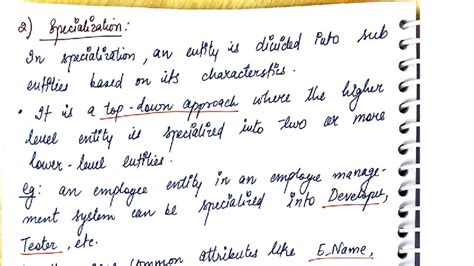 2) Specialization:
In specialization, an entity is divided into sub
entities based on its characterstics.
• It is a top-down approach where the higher
level entity is specialized into two or more
lower-level entities.
eg: an employee entity in an employee manage-
ment system can be specialized into Developer,
Tester, etc.
common attributes like E_Name,